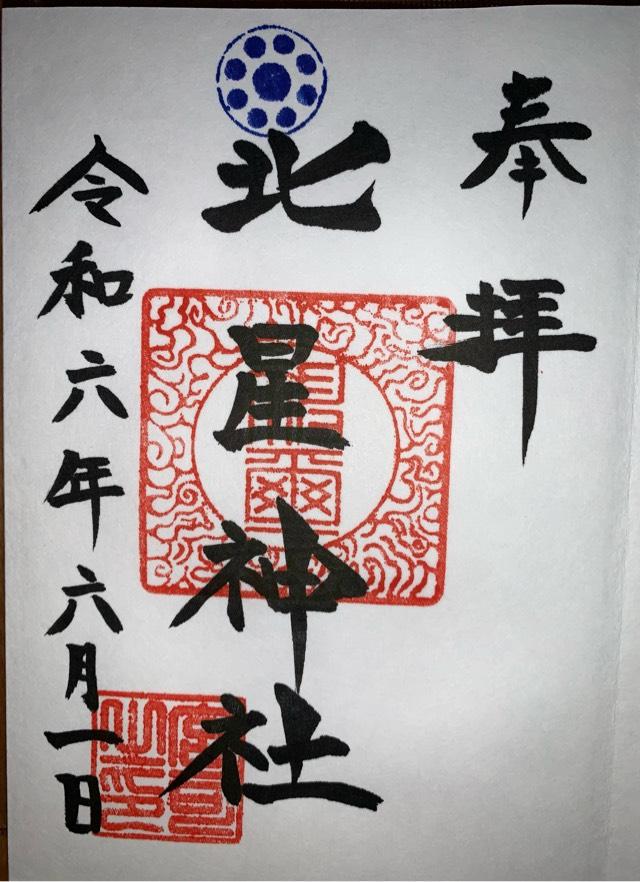 奉拝
北星神社
令和六年六月一日